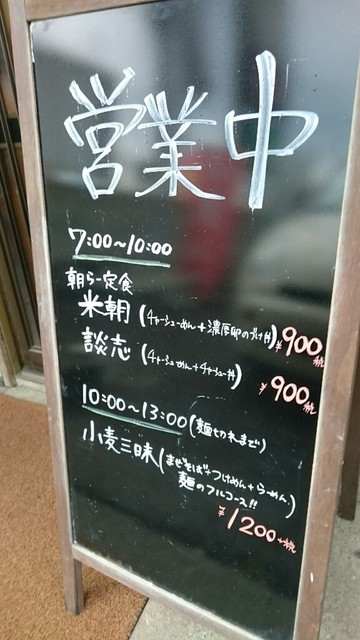 営業中
7:00~10:00
朝らー定食
米朝(チャーシューめん+濃厚卵のづけ丼)¥900税
談志(チャーシューめん+チャーシュー丼)
¥900税
10:00~13:00(麺切れまで)
小麦三昧(まぜそば+つけめん+らーめん)
麺のフルコース!!
¥1200税